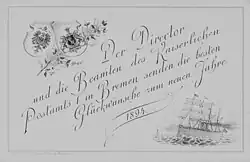 Der Director
und die Beamten des Kaiserlichen
Postamts 1 in Bremen senden die besten
Glückwünsche zum neuen Jahre.
1895.